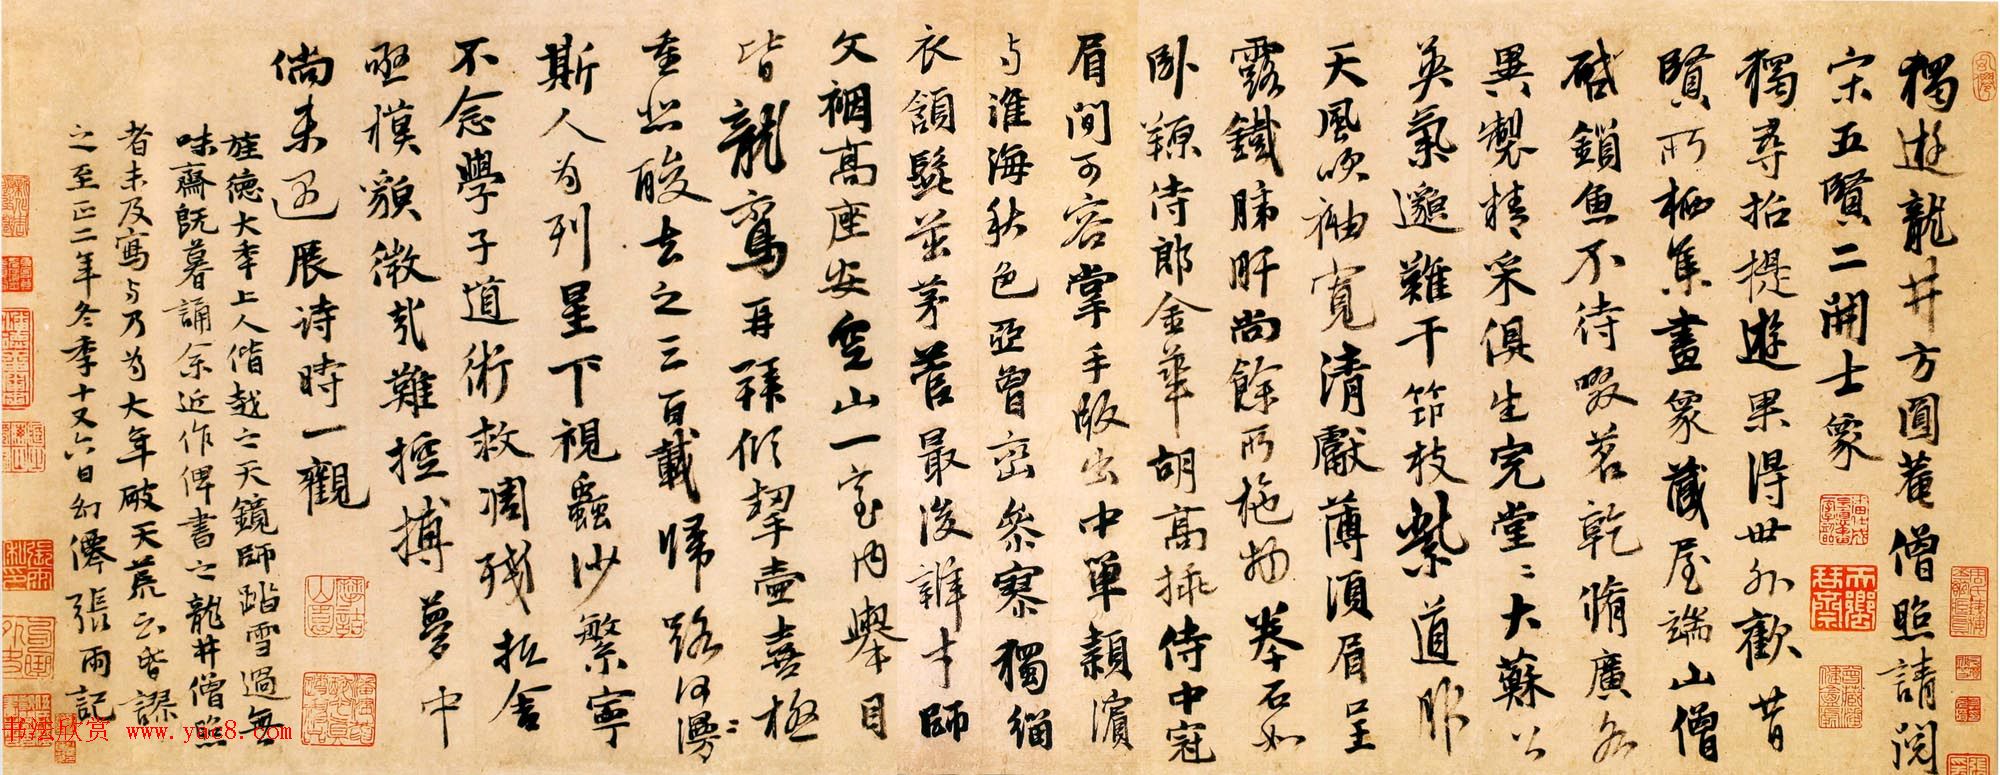 獨遊龍井方圓菴僧照請閱
宋五賢二開士象
獨尋招提遊果得世外歡昔
賢所栖集畫象藏屋端山僧
啟鎖魚不待啜茗乾脩廣各
異製精采俱生完堂〻大蘇公
英氣邈難干笻枝紫道服
天風吹袖寬清獻薄須眉呈
露鐵肺肝尚餘所施物拳石如
臥羱侍郎金華胡高揷侍中冠
眉間可容掌手版出中單潁濱
与淮海秋色亞曾巒參寥獨緇
衣頷髭茁茅菅最後辯才師
文裀高座安空山一室內舉目
皆龍鸞再拜傾挈壺喜極
垂涕酸去之三百載歸路何漫〻
斯人为列星下視蟲沙繁寧
不念學子道術救凋殘抵舍
亟模貌微我難控摶夢中
倘来遇展诗時一觀
旌德大年上人偕越之天鏡師踏雪過無
味齋既暮誦余近作俾書之龍井僧照
者未及寫与乃为大年破天荒云皆謬
之至正二年冬季十又六日幻僊張雨記
书法欣赏 www.yac8.com